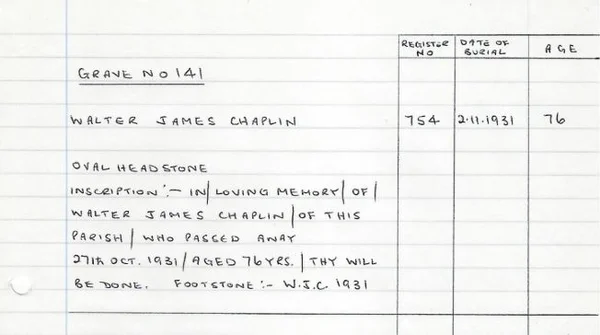 REGISTER NO DATE OF BURIAL AGE
GRAVE NO 141
WALTER JAMES CHAPLIN 754 2.11.1931 76
OVAL HEADSTONE
INSCRIPTION :- IN/ LOVING MEMORY/ OF/
WALTER JAMES CHAPLIN / OF THIS
PARISH / WHO PASSED AWAY
27th OCT. 1931 / AGED 76 YRS. / THY WILL
BE DONE. FOOTSTONE :- W.J.C. 1931